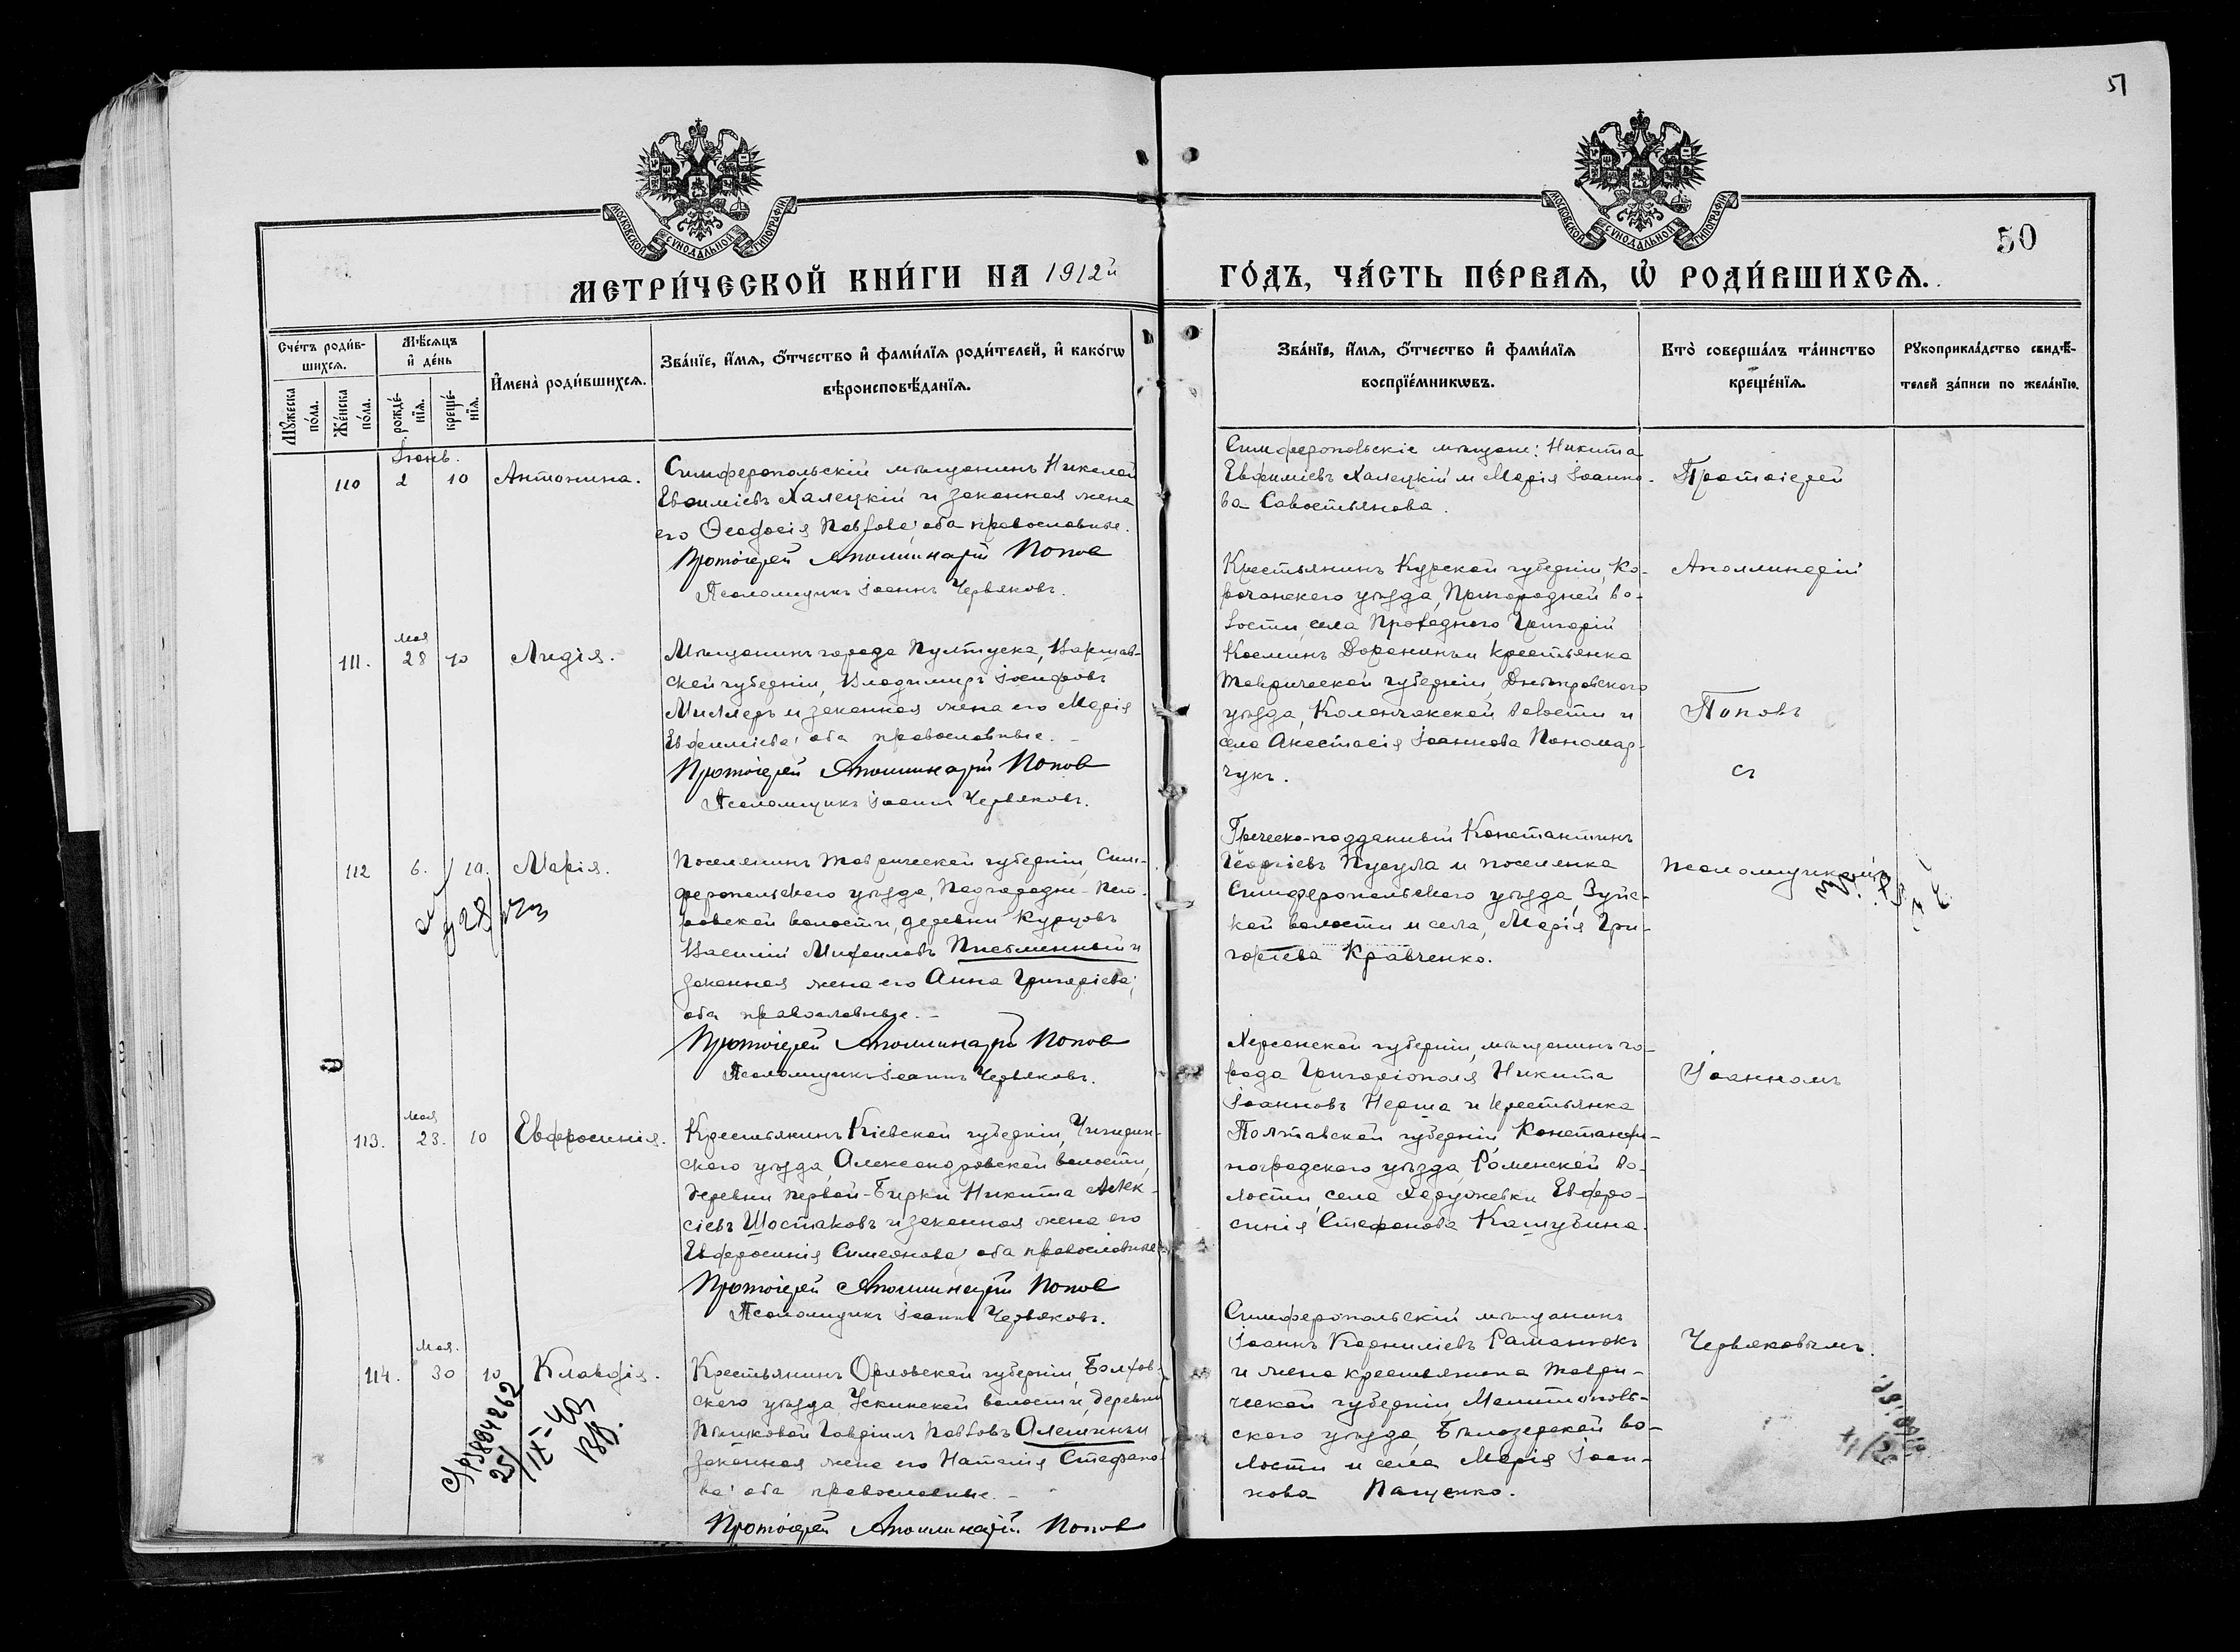 51
50
МОСКОВСКОЙ СѴНОДАЛЬНОЙ ТИПОГРАФІИ
МОСКОВСКОЙ СѴНОДАЛЬНОЙ ТИПОГРАФІИ
МЕТРИ́ЧЕСКОЙ КНИ́ГИ НА 1912й
ГО́ДЪ, ЧА́СТЬ ПЕ́РВАЯ, Ѡ҆ РОДИ́ВШИХСЯ.
Сче́тъ роди́в-
шихся.
Мꙋ́жеска по́ла.
Же́нска по́ла.
Мѣ́сяцъ
и҆ де́нь
рожде́-
нїя.
креще́-
нїя.
И҆мена̀ роди́вшихся.
Зва́нїе, и҆́мя, ѻ҆́тчество и҆ фами́лїя роди́телей, и҆ како́гѡ
вѣроисповѣ́данїя.
Зва́нїе, и҆́мя, ѻ҆́тчество и҆ фами́лїя
воспрїе́мникѡвъ.
Кто̀ соверша́лъ та́инство
креще́нїя.
Рꙋкоприкла́дство свидѣ́-
телей за́писи по жела́нїю.
Іюнь.
110 2 10 Антонина.
Симферопольскій мѣщанинъ Николай
Евѳиміевъ Халецкій и законная жена
его Ѳеодосія Павлова; оба православные.
Протоіерей Аполлинарій Попов
Псаломщикъ Іоаннъ Червяковъ.
Симферопольскіе мѣщане: Никита
Евфиміевъ Халецкій и Марія Іоанно-
ва Савостьянова.
Протоіерей
мая
111. 28 10 Лидія.
Мѣщанинъ города Пултуска, Варшав-
ской губерніи, Владимиръ Іосифовъ
Миллеръ и законная жена его Марія
Евфиміева; оба православные.
Протоіерей Аполлинарій Попов
Псаломщикъ Іоаннъ Червяковъ.
Крестьянинъ Курской губерніи, Ко-
рочанскаго уѣзда, Пригородней во-
лости, села
Косминъ Доронинъ и крестьянка
Таврической губерніи, Днѣпровскаго
уѣзда, Каланчакской волости и
села Анастасія Іоаннова Пономар-
чукъ.
Аполлинарій
Поповъ
съ
112 6. 10. Марія.
Поселянинъ Таврической губерніи, Сим-
феропольскаго уѣзда, Подгородне-Пет-
ровской волости, деревни Курцовъ
Василій Михаиловъ Письменный и
законная жена его Анна Григоріева;
оба православные.
Протоіерей Аполлинарій Попов
Псаломщикъ Іоаннъ Червяковъ.
Греческо-подданный Константинъ
Георгіевъ Пусула и поселянка
Симферопольскаго уѣзда, Зуйс-
кой волости и села, Марія Гри-
горіева Кравченко.
псаломщикомъ
мая
113. 23. 10 Евфросинія.
Крестьянинъ Кіевской губерніи, Чигирин-
скаго уѣзда, Александровской волости,
деревни первой-Бирки Никита Алек-
сіевъ Шостаковъ и законная жена его
Евфросинія Симеонова; оба православные
Протоіерей Аполлинарій Попов
Псаломщикъ Іоаннъ Червяковъ.
Херсонской губерніи, мѣщанинъ го-
рода Григоріополя Никита
Іоанновъ Нерша и крестьянка
Полтавской губерніи Константи-
ноградскаго уѣзда, волости, села Евфро-
синія Стефанова Кашубина.
Іоанномъ
Мая.
114. 30 10 Клавдія.
Крестьянинъ Орловской губерніи, Болхов-
скаго уѣзда, волости, деревни
Гавріилъ Павловъ Алешинъ и
законная жена его Наталія Стефано-
ва; оба православные.
Протоіерей Аполлинарій Попов
Симферопольскій мѣщанинъ
Іоаннъ Корниліевъ Романюкъ
и жена крестьянина Таври-
ческой губерніи, Мелитополь-
скаго уѣзда, Бѣлозерской во-
лости и села Марія Іоан-
нова Пащенко.
Червяковымъ.